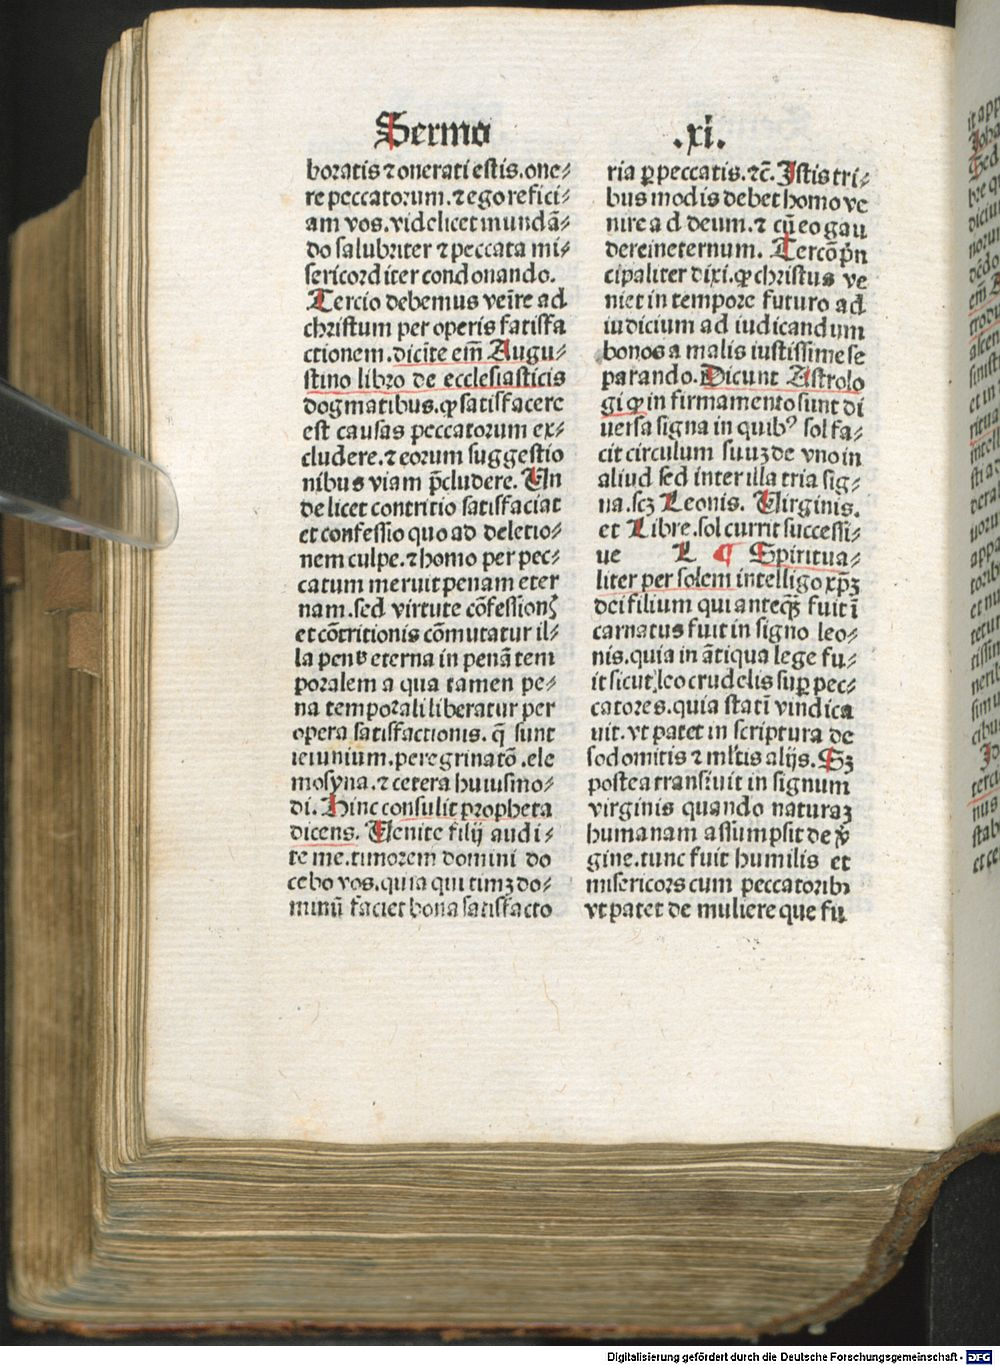 Sermo .xi.
boratis ⁊ onerati estis. one⸗
re peccatorum. ⁊ ego refici⸗
am vos. videlicet mundã⸗
do salubriter ⁊ peccata mi⸗
sericorditer condonando.
Tercio debemus veīre ad
christum per operis satisfa
ctionem. dicīte em̄ Augu⸗
stino libro de ecclesiasticis
dogmatibus. ꝙ satisfacere
est causas peccatorum ex⸗
cludere. ⁊ eorum suggestio
nibus viam p̄cludere. Un
de licet contritio satisfaciat
et confessio quo ad deletio⸗
nem culpe. ⁊ homo per pec⸗
catum meruit penam eter
nam. sed virtute cõfessionꝭ
et cõtritionis cõmutatur il⸗
la pena eterna in penã tem
poralem a qua tamen pe⸗
na temporali liberatur per
opera satisfactionis. q̄ sunt
ieiunium. peregrinatõ. ele
mosyna. ⁊ cetera huiusmo⸗
di. Hinc consulit propheta
dicens. Uenite filij audi⸗
te me. timorem domini do
cebo vos. quia qui timꝫ do⸗
minū faciet bona satisfacto
ria ꝓ peccatis. ⁊c̄. Istis tri⸗
bus modis debet homo ve
nire ad deum. ⁊ cū eo gau
dere in eternum. Tercõ p̄n
cipaliter dixi. ꝙ christus ve
niet in tempore futuro ad
iudicium ad iudicandum
bonos a malis iustissime se
parando. Dicunt Astrolo
gi ꝙ in firmamento sunt di
uersa signa in quibꝰ sol fa⸗
cit circulum suuꝫ de vno in
aliud sed inter illa tria sig⸗
na. scꝫ Leonis. Uirginis.
et Libre. sol currit successi⸗
ue L ¶ Spiritua⸗
liter per solem intelligo xp̄ꝫ
dei filium qui anteqꝫ fuit ī
carnatus fuit in signo leo⸗
nis. quia in ãtiqua lege fu⸗
it sicut leo crudelis suꝑ pec⸗
catores. quia statī vindica
uit. vt patet in scriptura de
sodomitis ⁊ ml̄tis alijs. Sꝫ
postea transiuit in signum
virginis quando naturaꝫ
humanam assumpsit de v̄
gine. tunc fuit humilis et
misericors cum peccatoribꝰ
vt patet de muliere que fu